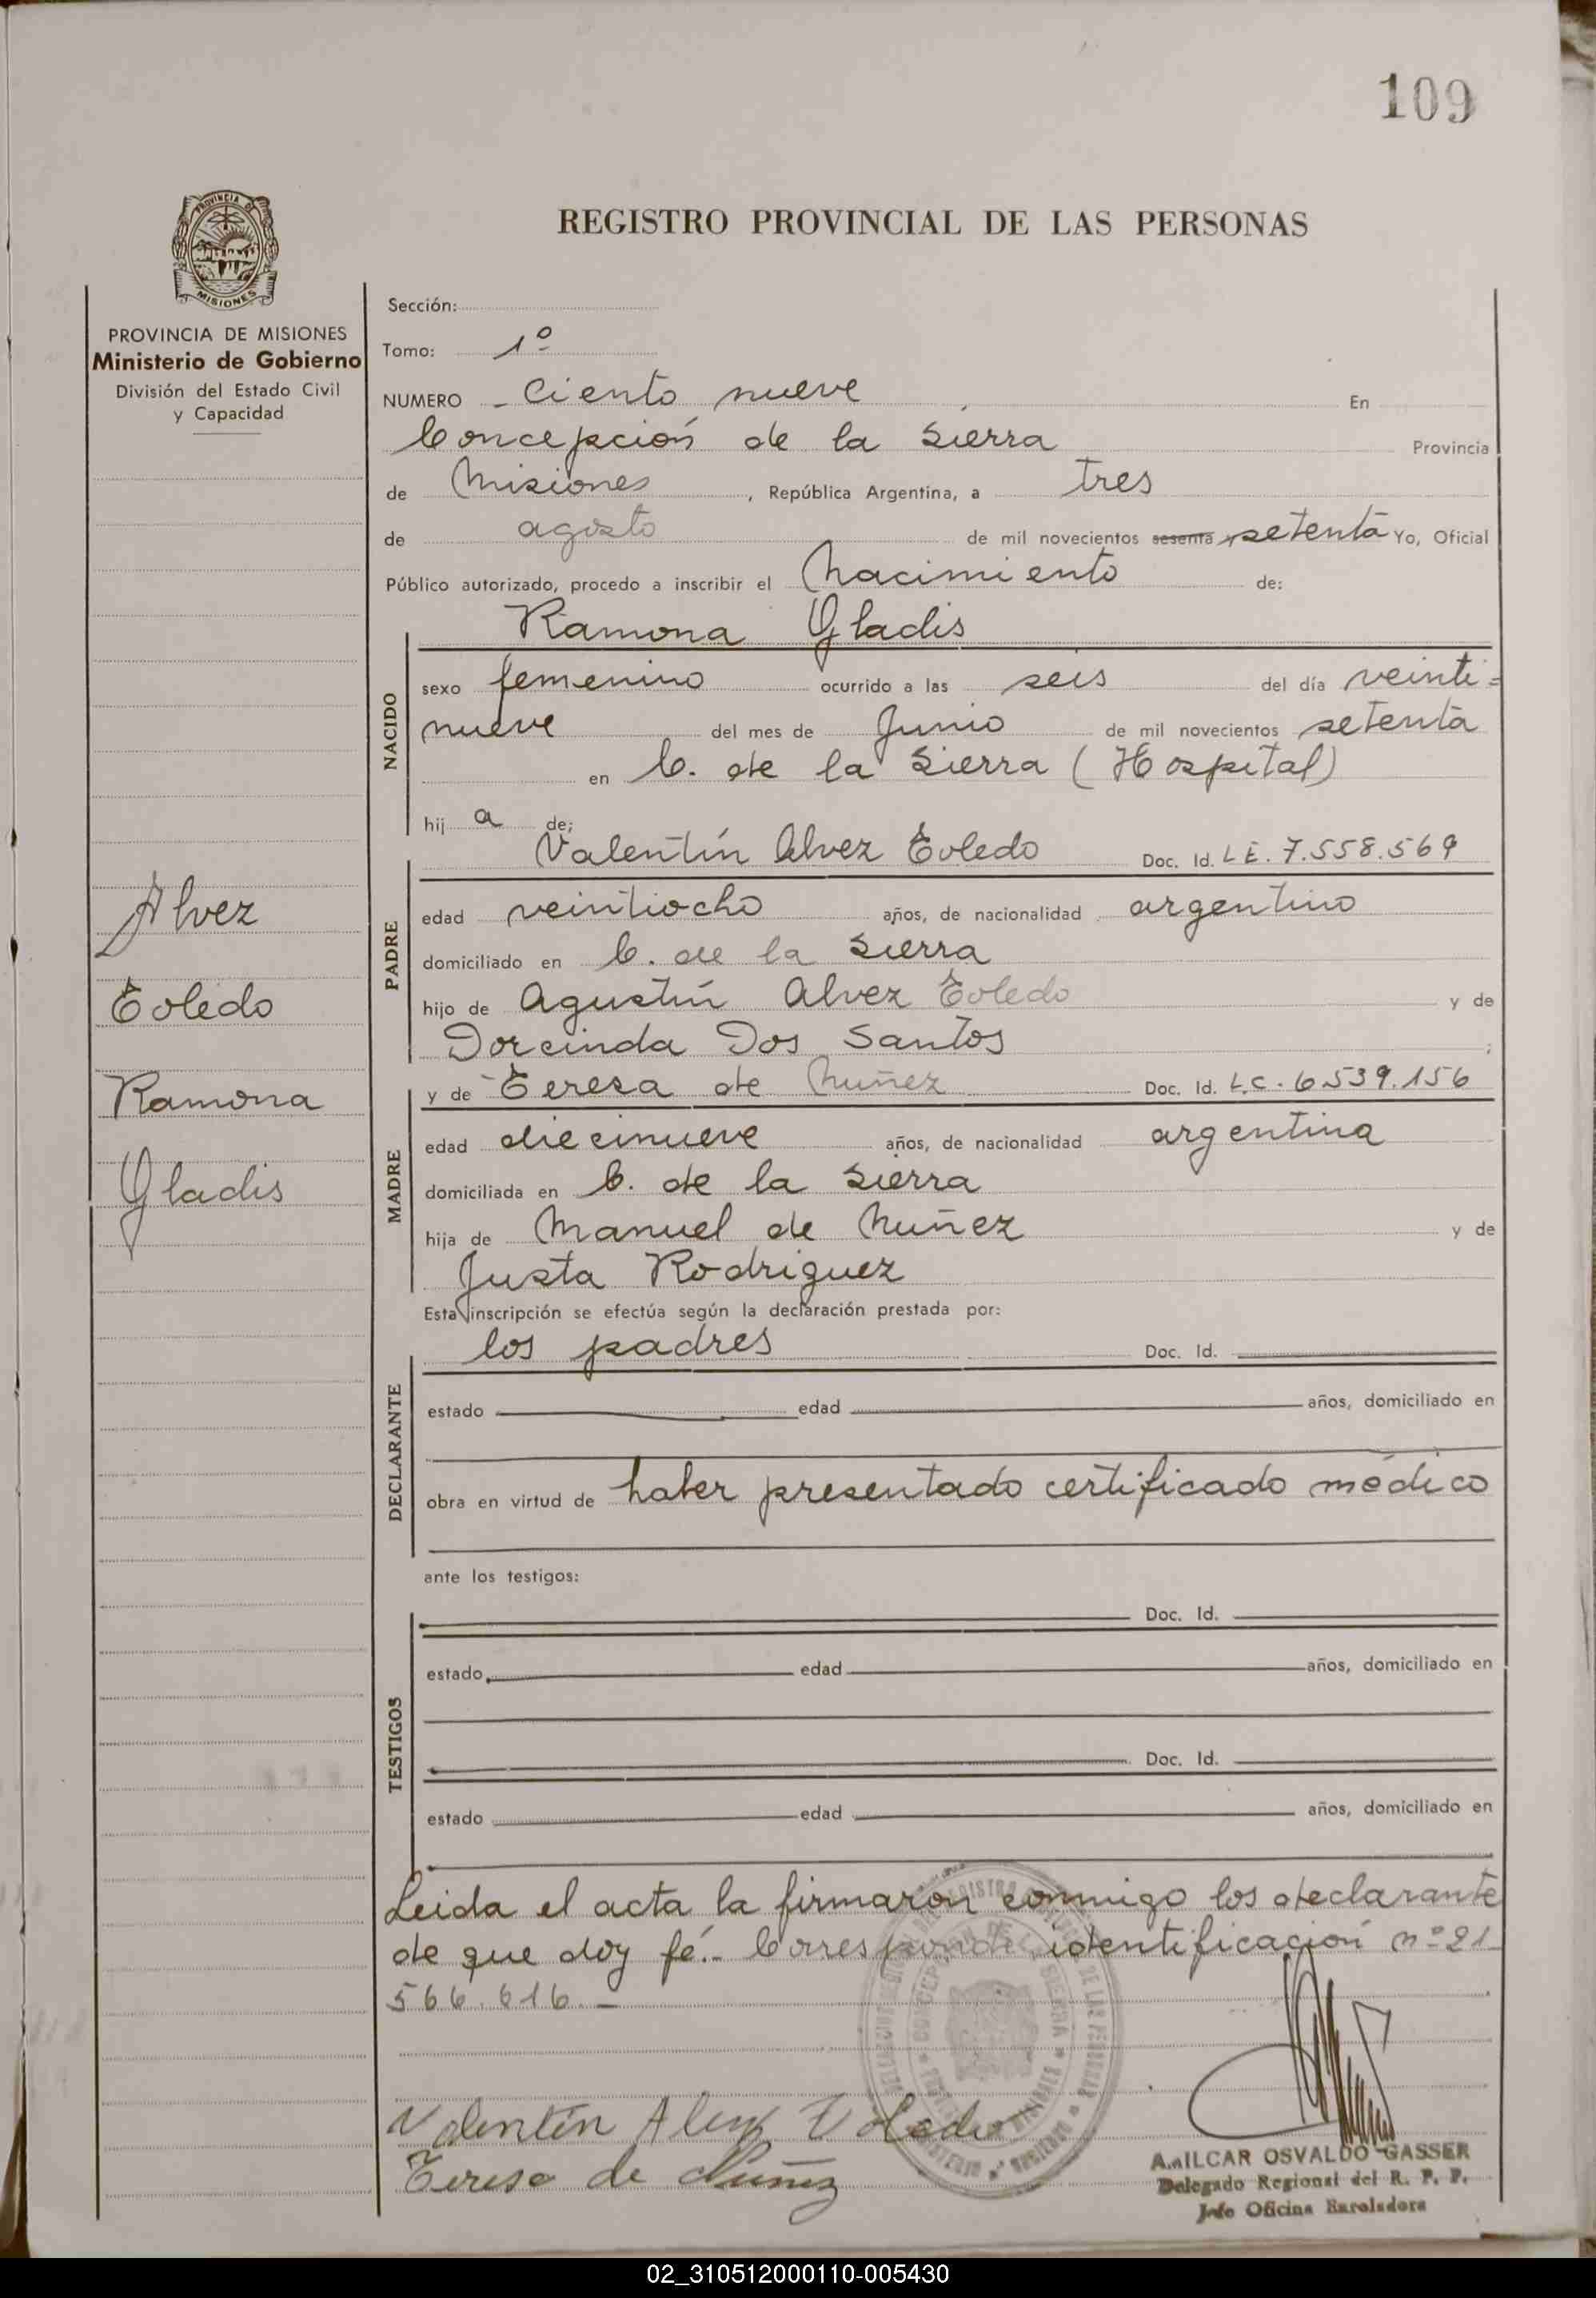 109
REGISTRO PROVINCIAL DE LAS PERSONAS
PROVINCIA DE
MISIONES
PROVINCIA DE MISIONES
Ministerio de Gobierno
División del Estado Civil
y Capacidad
Alvez
Toledo
Ramona
Gladis
Sección:
Tomo: 1º
NUMERO - Ciento nueve En
Concepción de la Sierra Provincia
de Misiones, República Argentina, a tres
de agosto de mil novecientos sesenta y setenta Yo, Oficial
Público autorizado, procedo a inscribir el Nacimiento de:
Ramona Gladis
NACIDO
sexo femenino ocurrido a las seis del día veinti=
nueve del mes de Junio de mil novecientos setenta
en C. de la Sierra (Hospital)
hij a de;
Valentín Alvez Toledo Doc. Id. L.E. 7.558.569
PADRE
edad veintiocho años, de nacionalidad argentino
domiciliado en C. de la Sierra
hijo de Agustín Alvez Toledo y de
Dorcinda Dos Santos;
y de Teresa de Nuñez Doc. Id. L.C. 6.539.156
MADRE
edad diecinueve años, de nacionalidad argentina
domiciliada en C. de la Sierra
hija de Manuel de Nuñez y de
Justa Rodriguez
Esta inscripción se efectúa según la declaración prestada por:
los padres Doc. Id.
DECLARANTE
estado edad años, domiciliado en
obra en virtud de haber presentado certificado médico
ante los testigos:
Doc. Id.
TESTIGOS
estado edad años, domiciliado en
Doc. Id.
estado edad años, domiciliado en
Leida el acta la firmaron conmigo los declarante
de que doy fé.- Corresponde identificación nº 21
566.616.-
Valentín Alvez Toledo
Teresa de Nuñez
CONCEPCION DE LA SIERRA
DE LAS PERSONAS
MISIONES
A.MILCAR OSVALDO GASSER
Delegado Regional del R. P. P.
Jefe Oficina Enroladora
02_310512000110-005430